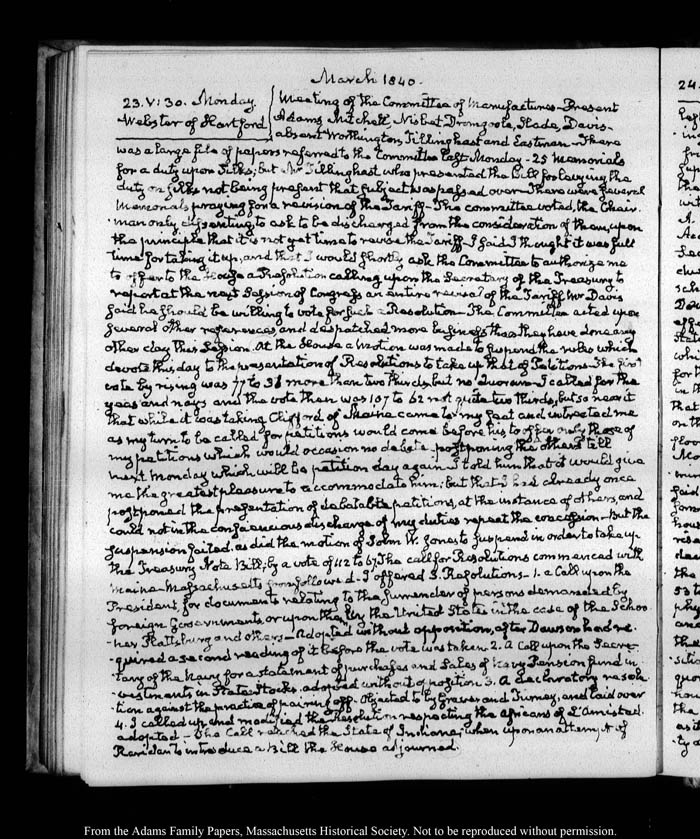 March 1840.
23. V:30. Monday.
Webster of Hartford
Meeting of the Committee of Manufactures—Present
Adams, Mitchell, Nisbet, Dromgoole, Slade, Davis—
absent Worthington, Tillinghast and Eastman. There
was a large file of papers referred to the Committee last Monday—25 memorials
for a duty upon Silks; but Mr Tillinghast who presented the Bill for laying the
duty on silks not being present that subject was passed over—There were several
Memorials praying for a revision of the Tariff—The committee voted, the Chair-
-man only dissenting to ask to be discharged from the consideration of them, upon
the principle that it is not yet time to revise the Tariff—I said I thought it was full
time for taking it up, and that I would shortly ask the Committee to authorize me
to offer to the House a Resolution calling upon the Secretary of the Treasury to
report at the next Session of Congress an entire revisal of the Tariff. Mr Davis
said he should be willing to vote for such a Resolution—The Committee acted upon
several other references and despatched more business than they have done any
other day this Session. At the House a motion was made to suspend the rules which
devote this day to the presentation of Resolutions to take up that of Petitions—The first
vote by rising was 77 to 31 more than two thirds, but no Quorum—I called for the
yeas and nays and the vote then was 107 to 62 not quite two thirds, but so near it
that while it was taking Clifford of Maine came to my seat and intreated me
as my turn to be called for petitions would come before his to offer only those of
my petitions which would occasion no debate—postponing the others till
next Monday which will be petition day again—I told him that it would give
me the greatest pleasure to accommodate him; but that I had already once
postponed the presentation of debatable petitions, at the instance of others, and
could not in the conscientious discharge of my duties repeat the concession—But the
suspension failed, as did the motion of John W. Jones to suspend in order to take up
the Treasury Note Bill; by a vote of 112 to 67. The call for Resolutions commenced with
Maine—Massachusetts soon followed—I offered 3. Resolutions—1. a Call upon the
President, for documents relating to the surrender of persons demanded by
foreign Governments or upon them by the United States in the case of the Schoo-
-ner Plattsburg and others—Adopted without opposition, after Dawson had re-
-quired a second reading of it before the vote was taken. 2. A Call upon the Secre-
-tary of the Navy for a statement of purchases and sales of Navy Pension fund in-
-vestments in State Stocks, adopted without opposition 3. A declaratory resolu-
-tion against the practice of pairing off—Objected to by Graves and Turney, and laid over
4. I called up and modified the Resolution respecting the Africans of L'Amistad.
adopted—The Call reached the State of Indiana; when upon an attempt of
Rariden to introduce a Bill the House adjourned.
24.
From the Adams Family Papers, Massachusetts Historical Society. Not to be reproduced without permission.